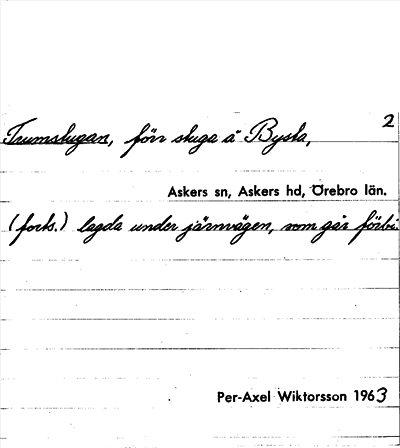 2
Trumstugan, förr stuga å Bysta,
Askers sn, Askers hd, Örebro län.
(forts.) lagda under järnvägen, som går förbi.
Per-Axel Wiktorsson 1963